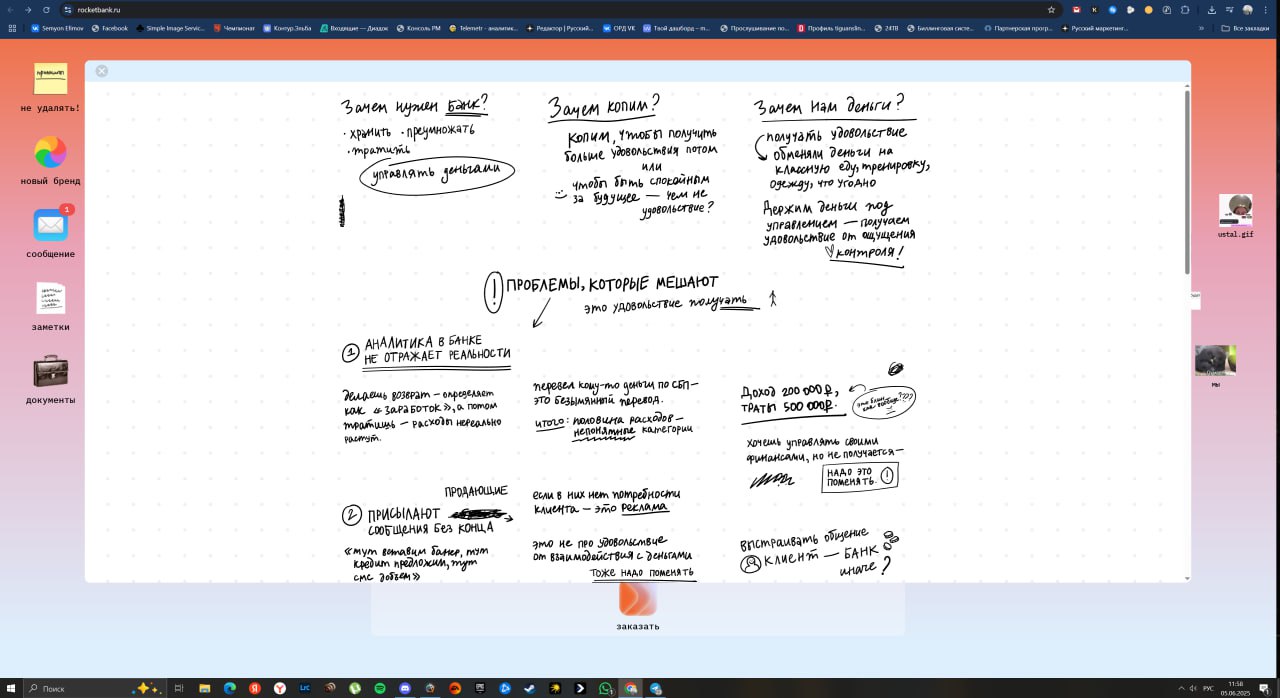 rocketbank.ru
Semyon Efimov
Facebook
Simple Image Servic...
Чемпионат
Контур.Эльба
Входящие — Диадок
Консоль РМ
Telemetr - аналитик...
Редактор | Русский...
ОРД VK
Твой дашборд – m...
Прослушивание по...
Профиль tiguanslin...
24ТВ
Биллинговая систе...
Партнерская прогр...
Русский маркетинг...
»
Все закладки
не удалять!
новый бренд
1
сообщение
заметки
документы
Зачем нужен банк?
· хранить · преумножать
· тратить
управлять деньгами
Зачем копим?
Копим, чтобы получить
больше удовольствия потом
или
чтобы быть спокойным
за будущее — чем не
удовольствие?
Зачем нам деньги?
получать удовольствие
обменяли деньги на
классную еду, тренировку,
одежду, что угодно
Держим деньги под
управлением — получаем
удовольствие от ощущения
контроля!
! ПРОБЛЕМЫ, КОТОРЫЕ МЕШАЮТ
это удовольствие получать
1 АНАЛИТИКА В БАНКЕ
НЕ ОТРАЖАЕТ РЕАЛЬНОСТИ
делаешь возврат — определяет
как «ЗАРАБОТОК», а потом
тратишь — расходы нереально
растут.
перевел кому-то деньги по СБП —
это безымянный перевод.
итого: половина расходов —
непонятные категории
Доход 200 000₽,
ТРАТЫ 500 000₽.
хочешь управлять своими
финансами, но не получается —
НАДО ЭТО
ПОМЕНЯТЬ. !
ПРОДАЮЩИЕ
2 ПРИСЫЛАЮТ
СООБЩЕНИЯ БЕЗ КОНЦА
«тут вставим банер, тут
кредит предложим, тут
смс добьем»
если в них нет потребности
клиента — это реклама
это не про удовольствие
от взаимодействия с деньгами
тоже надо поменять
выстраивать общение
КЛИЕНТ — БАНК
иначе?
ustal.gif
мы
заказать
Поиск
РУС
11:58
05.06.2025